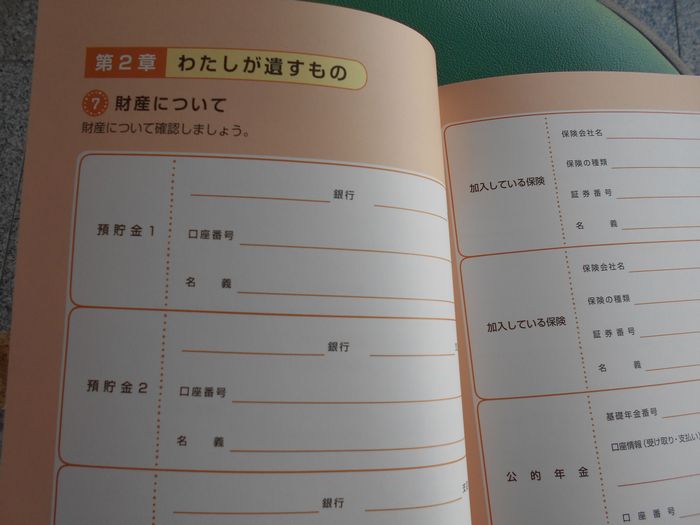 第2章 わたしが遺すもの
7 財産について
財産について確認しましょう。
預貯金1
銀行
口座番号
名 義
預貯金2
銀行
口座番号
名 義
銀行
加入している保険
保険会社名
保険の種類
証券番号
名 義
加入している保険
保険会社名
保険の種類
証券番号
名 義
公的年金
基礎年金番号
口座情報(受け取り・支払い)
口座番号